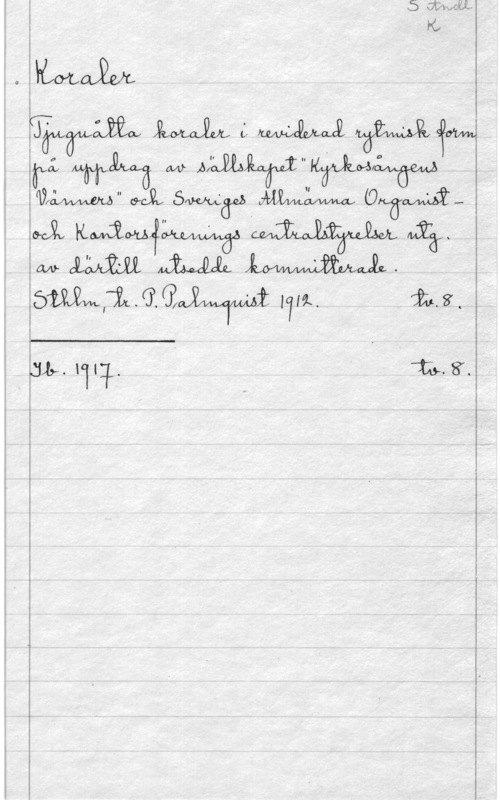 S Andl
K
Koraler
Tjuguåtta koraler i reviderad rytmisk form
på uppdrag av sällskapet "Kyrkosångens
Vänners" och Sveriges Allmänna Organist-
och Kantorsförenings centralstyrelser utg.
av därtill utsedde kommitterade.
Sthlm, tr. P. Palmquist 1912. tv. 8.
Ib. 1917. tv. 8.